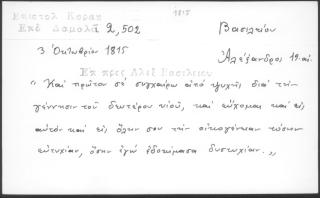 1815
Επιστολ Κοραη
Επδ Δαμαλᾶ 2,502
Βασιλείου
3 Ὀκτωβρίου 1815
Ἀλέξανδρος 19.αι.
Επ πρός Αλεξ Βασιλειου
"Καί πρῶτον σέ συγχαίρω ἀπό ψυχῆς διά τήν
γέννησιν τοῦ δευτέρου υἱοῦ, καί εὔχομαι καί εἰς
αὐτόν καί εἰς ὅλην σου τήν οἰκογένειαν τόσην
εὐτυχίαν, ὅσην ἐγώ ἐδοκίμασα δυστυχίαν."